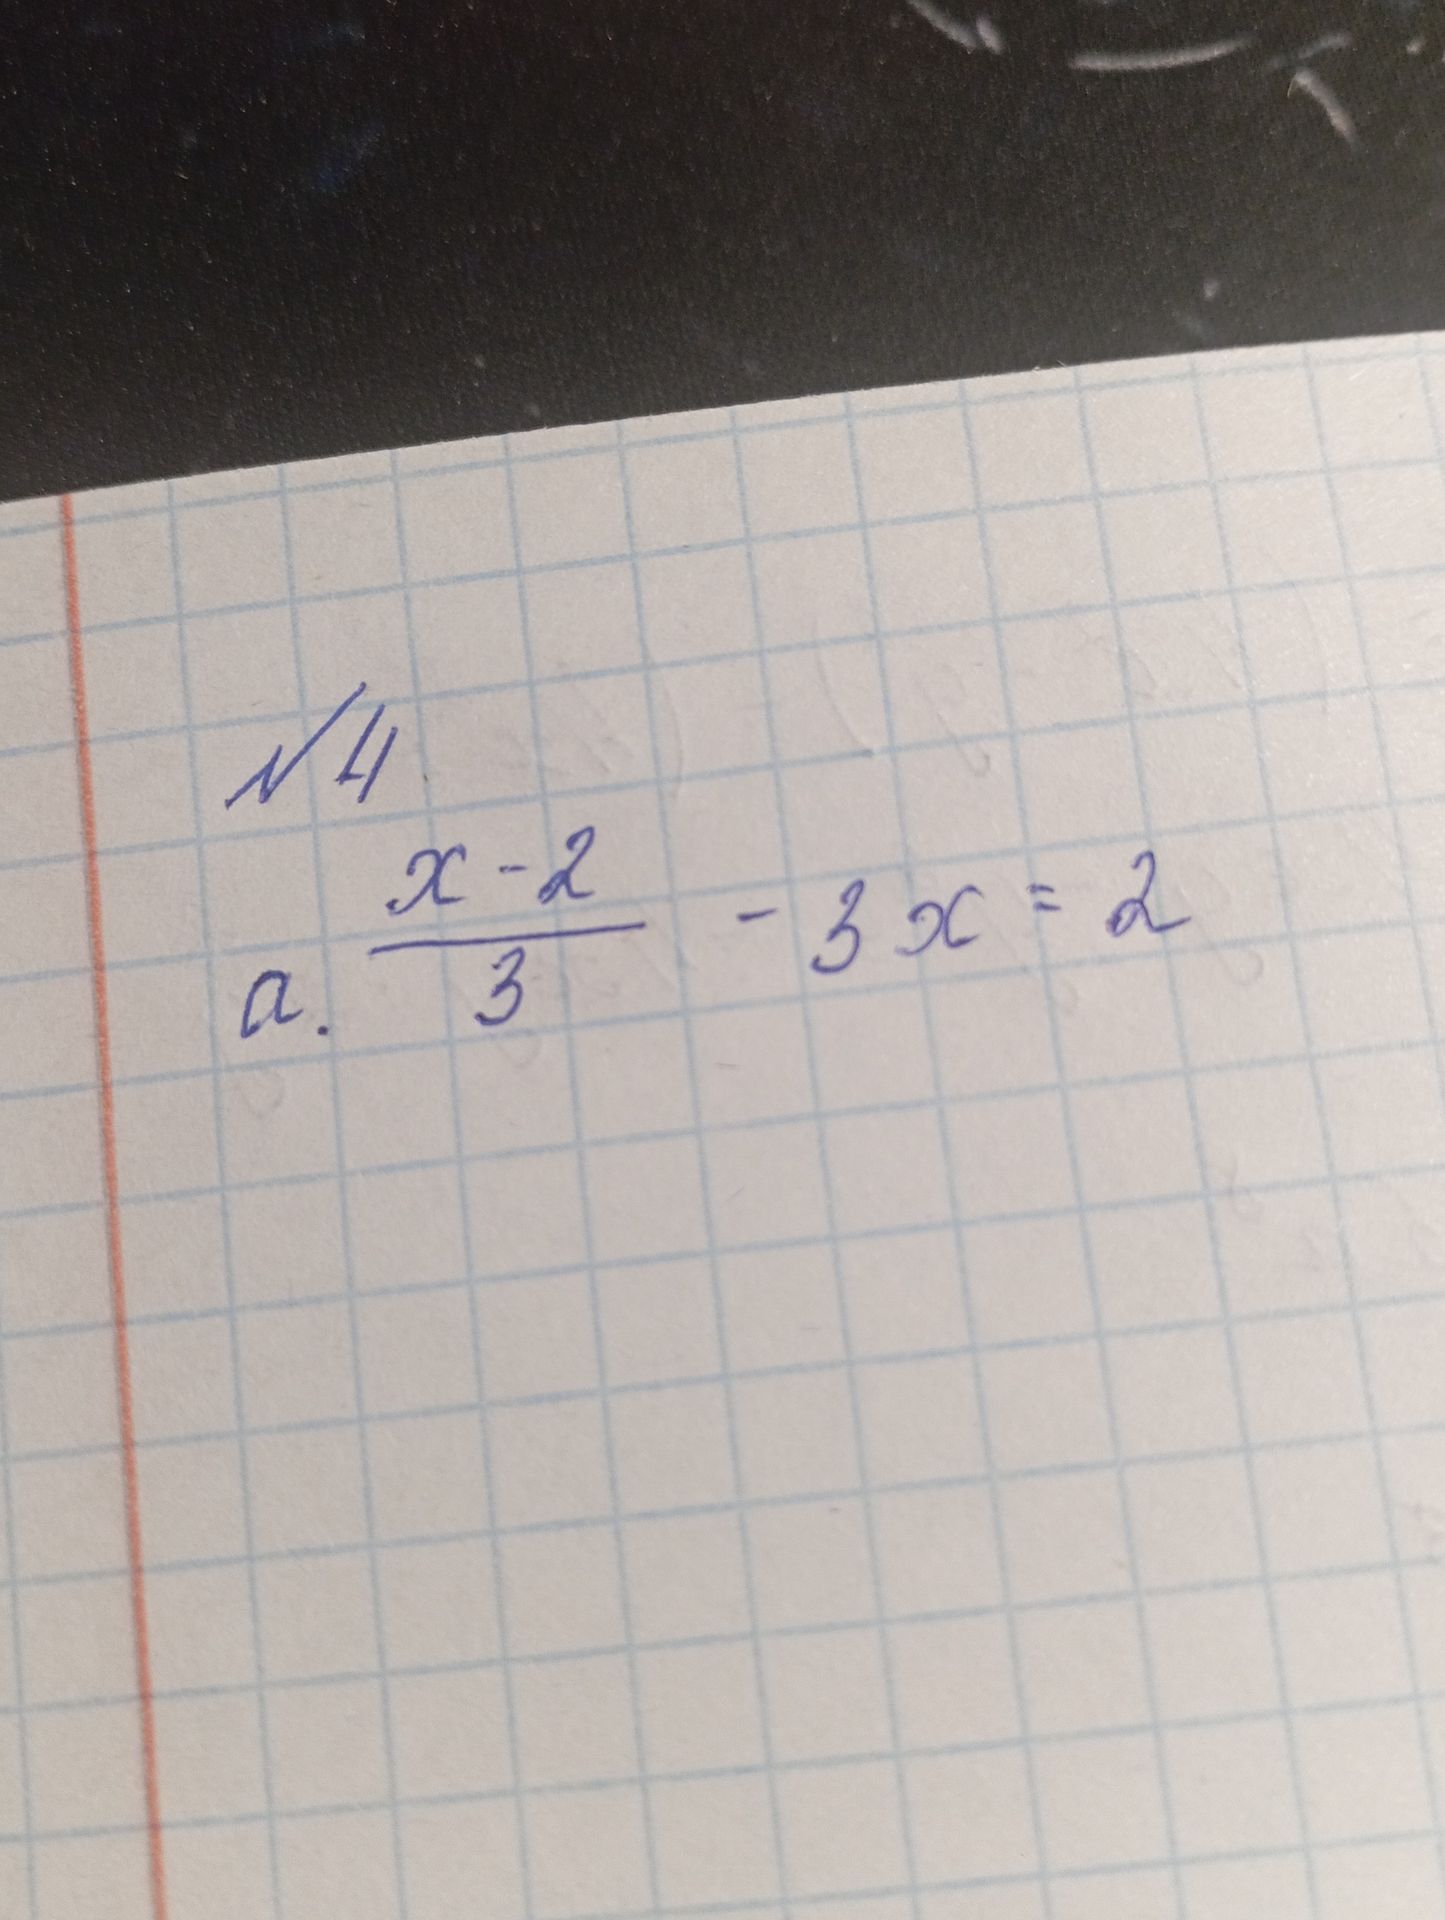 №4
а. x-2/3 - 3x = 2